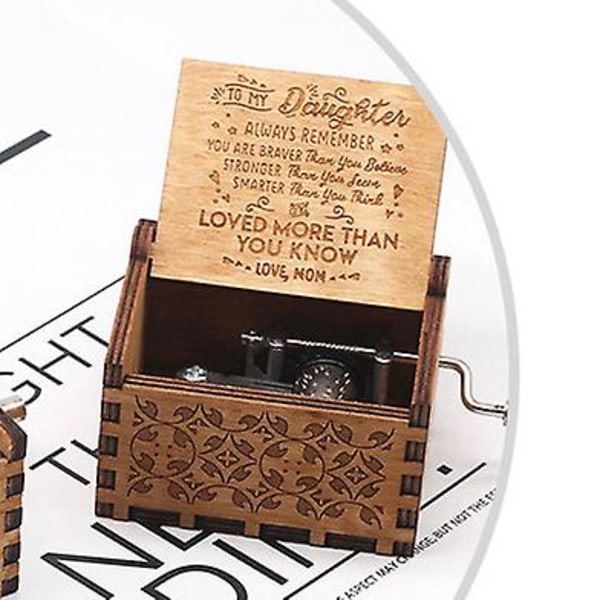 TO MY Daughter
ALWAYS REMEMBER
YOU ARE BRAVER Than You Believe
STRONGER Than You Seem
SMARTER Than You Think
and
LOVED MORE THAN
YOU KNOW
LOVE, MOM
GHT
TH
NE
DIN
ASPECT MAY CHANGE, BUT NOT THE